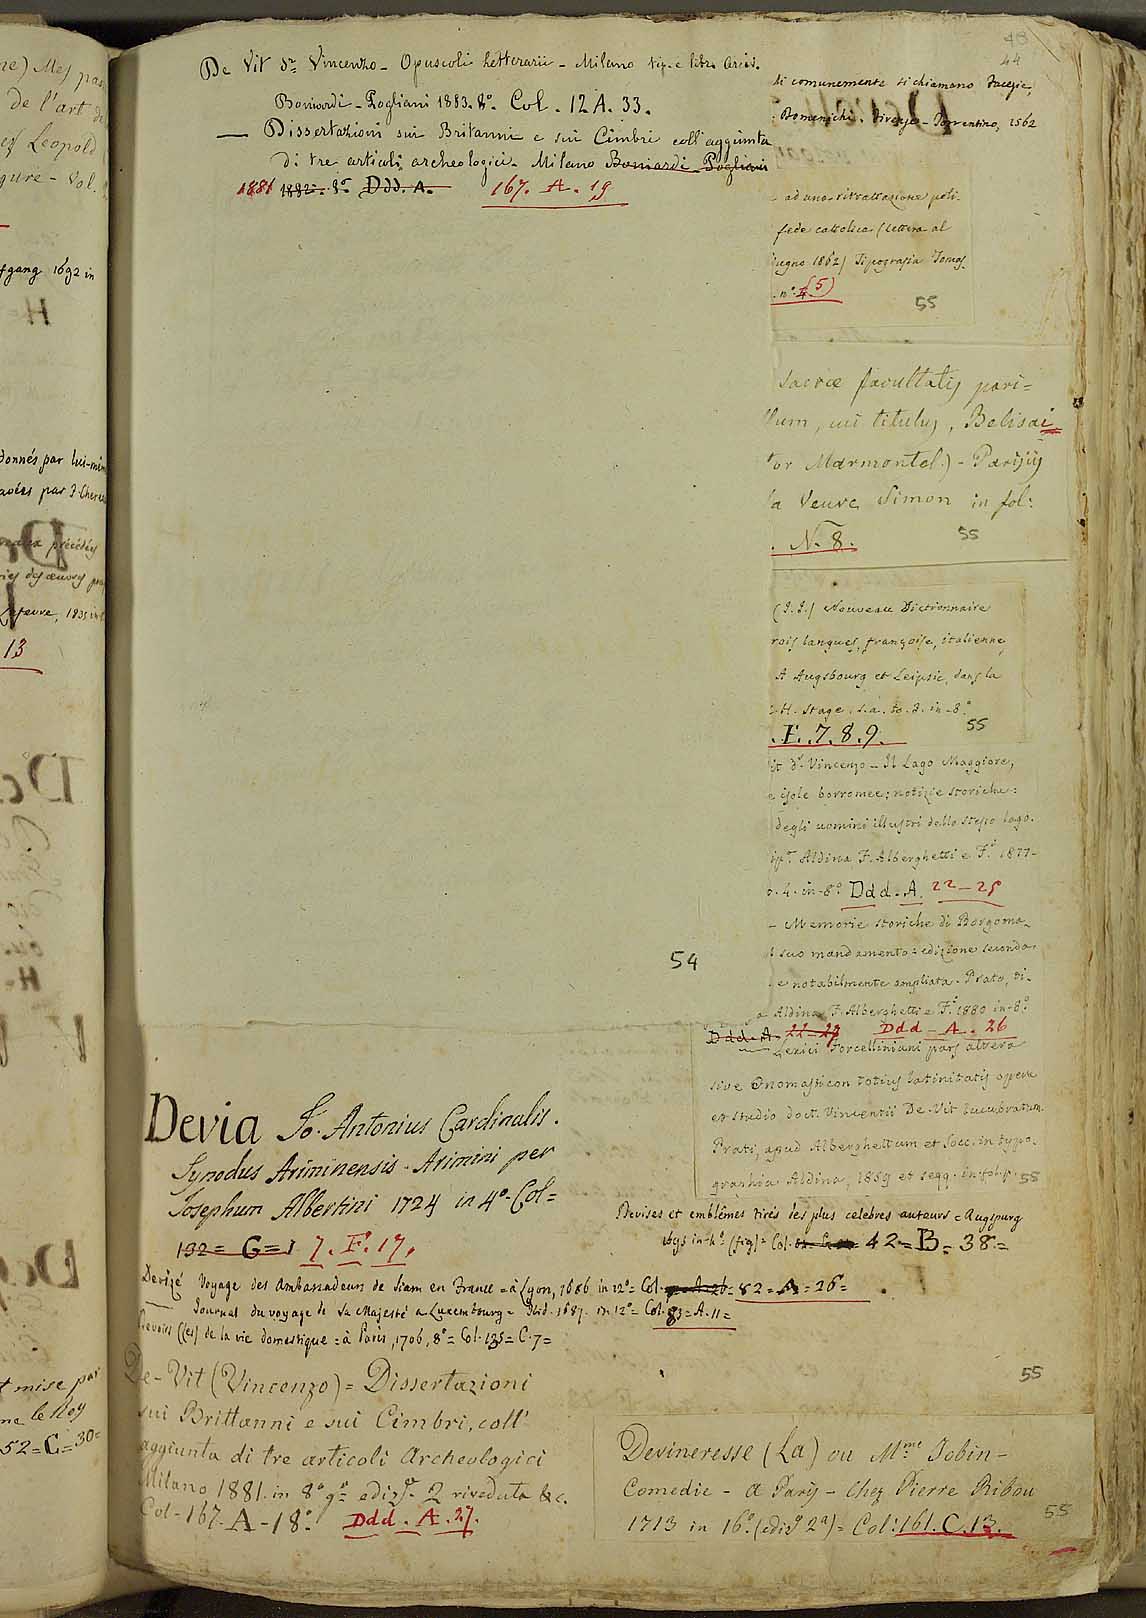 48
44
De Vit Dr. Vincenzo - Opuscoli Letterarii - Milano tip. e libr. Arciv.
Boniardi - Pogliani 1883. 8o. Col. 12 A. 33.
— Dissertazioni sui Britanni e sui Cimbri coll'aggiunta
di tre articoli archeologici - Milano Boniardi Pogliani
1881 1882. 8o Ddd. A. 167. A. 19
si comunemente si chiamano Facezie,
Domenichi. Firenze - Torrentino, 1562
ad una ritrattazione poli-
fede cattolica (lettera al
iugno 1862) Tipografia Tomas.
. no. 4. (5)
55
sacræ facultatis pari=
um, cui titulus, Belisai
or Marmontel.) - Parisiis
la Veuve Simon in fol:
. N. 8.
55
(J.J.) Nouveau Dictionnaire
rois langues, françoise, italienne,
A Augsbourg et Leipsic, dans la
H. Stage. s.a. to. 3. in-8.o
.F. 7. 8. 9.
55
it Dr. Vincenzo - Il Lago Maggiore,
e isole borromee; notizie storiche:
degli uomini illustri dello stesso lago.
ipa. Aldina F. Alberghetti e F.i 1877-
o. 4. in-8o Ddd. A. 22-25
- Memorie storiche di Borgoma-
suo mandamento: edizione seconda
e notabilmente ampliata - Prato, ti-
a Aldina F. Alberghetti e F.i 1880 in-8o
Ddd. A. 22-27 Ddd - A. 26
Lexici Forcelliniani pars altera
sive Onomasticon totius latinitatis opera
et studio doct. Vincentii De-Vit lucubratum
Prati, apud Alberghettum et Socc. in typo-
graphia Aldina, 1859 et seqq. in fol. p.
55
54
Devia Jo. Antonius Cardinalis.
Synodus Ariminensis - Arimini per
Josephum Albertini 1724 in 4o - Col=
132 = G = 1 7. F. 17.
Devises et emblêmes tirés des plus celebres auteurs = Augspurg
in 4o (fig) = Col. 42 = B = 38 =
Devizé Voyage des Ambassadeurs de Siam en France = à Lyon, 1686 in 12o = Col. 82 = A = 26 =
— Journal du voyage de Sa Majesté a Luxembourg = Ibid. 1687. in 12o = Col. 83 = A. 11 =
Devoirs (les) de la vie domestique = à Paris, 1706, 8o = Col. 135 = C. 7 =
55
De-Vit (Vincenzo) = Dissertazioni
sui Brittanni e sui Cimbri, coll'
aggiunta di tre articoli Archeologici
Milano 1881. in 8o ediz. 2 riveduta &c.
Col - 167 - A - 18.o Ddd. A. 27.
Devineresse (La) ou Mme. Jobin -
Comedie - a Paris - chez Pierre Ribou
1713 in 16o. (ediz 2a) = Col: 161. C. 13.
55
de l'art de
Leopold
gure - Vol.
fgang 1692 in
H
donnés par lui-mêm
par J. Chereau
précédés
des œuvres
Lefevre, 1835 in
13
t mise par
me le Roy
52 = C = 30 =